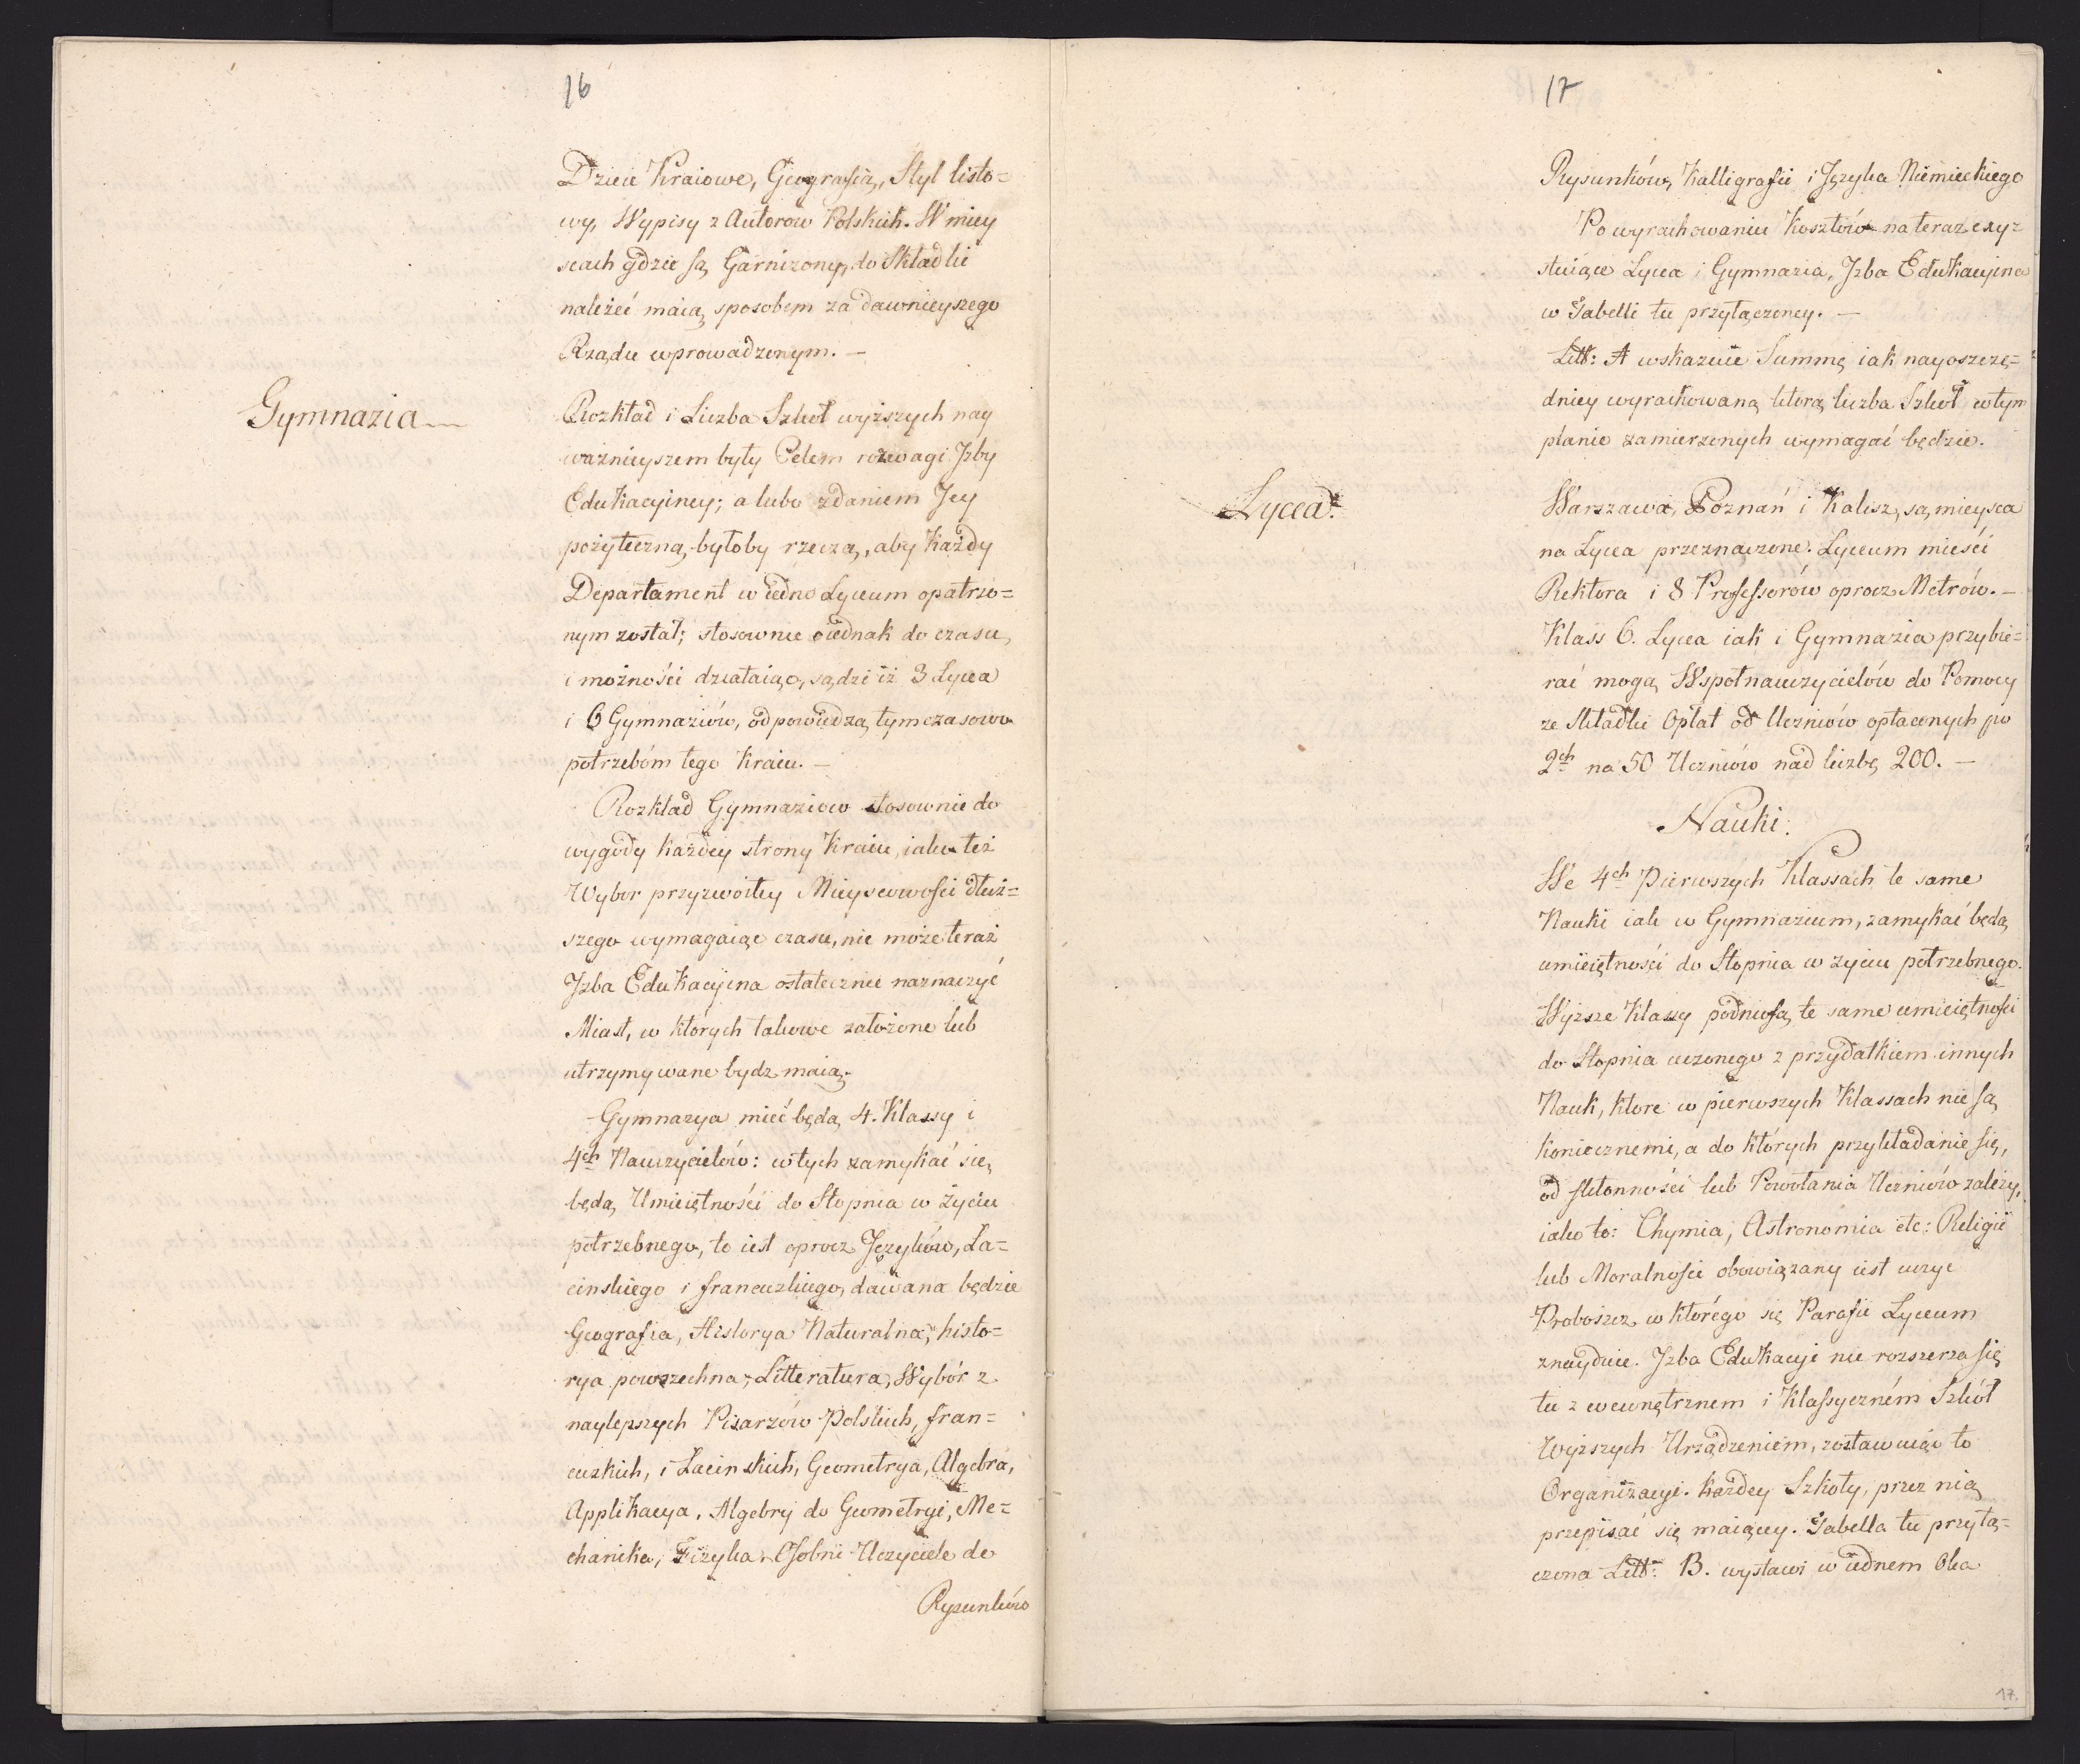 16
Dzieie Kraiowe, Geografią, Styl listo=
wy, Wypisy z Autorow Polskich. W miey
scach gdzie są Garnizony, do Składki
należeć maią sposobem za dawnieyszego
Rządu wprowadzonym. —
Gymnazia
Rozkład i Liczba Szkół wyższych nay
ważnieyszem były Celem rozwagi Jzby
Edukacyiney; a lubo zdaniem Jey
pożyteczną byłoby rzeczą, aby Każdy
Departament w iedno Lyceum opatrzo=
nym został; stosownie iednak do czasu,
i możności działaiąc, sądzi iż 3 Lycea
i 6 Gymnaziów, odpowiedzą tymczasowo
potrzebom tego Kraiu. —
Rozkład Gymnaziow stosownie do
wygody każdey strony Kraiu, iako też
Wybor przyzwoitey Mieyscowości dłuż=
szego wymagaiąc czasu, nie może teraz
Jzba Edukacyina ostatecznie naznaczyć
Miast, w których takowe założone lub
utrzymywane bydz maią.
Gymnazya mieć będą 4. Klassy i
4ch Nauczycielów: w tych zamykać się
będą Umieiętności do Stopnia w życiu
potrzebnego, to iest oprocz Języków, Ła=
cinskiego i francuzkiego, dawana będzie
Geografia, Historya Naturalna, histo=
rya powszechna, Litteratura, Wybór z
naylepszych Pisarzów Polskich, fran=
cuzkich, i Łacinskich, Geometrya, Algebra,
Applikacya, Algebry do Geometryi, Me=
chanika, Fizyka. Osobni Uczyciele do
Rysunków
17
Rysunków, Kalligrafii i Języka Niemieckiego
Po wyrachowaniu Kosztów na teraz exy=
stuiące Lycea i Gymnazia, Jzba Edukacyina
w Tabelli tu przyłączoney. —
Litt: A wskazuie Summę iak nayoszczę=
dniey wyrachowaną którą liczba Szkół w tym
planie zamierzonych wymagać będzie.
Lycea.
Warszawa, Poznań i Kalisz, są mieysca
na Lycea przeznaczone. Lyceum mieści
Rektora i 8 Professorów oprocz Metrów. —
Klass 6. Lycea iak i Gymnazia przybie=
rać mogą Wspołnauczycielów do Pomocy
ze Składki Opłat od Uczniów opłaconych po
2ch na 50 Uczniów nad liczbę 200. —
Nauki.
We 4ch Pierwszych Klassach te same
Nauki iak w Gymnazium, zamykać będą
umieiętności do Stopnia w życiu potrzebnego.
Wyższe Klassy podniosą te same umieiętności
do Stopnia uczonego z przydatkiem innych
Nauk, ktore w pierwszych Klassach nie są
koniecznemi, a do których przykładanie się,
od skłonności lub Powołania Uczniów zależy,
iako to: Chymia, Astronomia etc: Religii
lub Moralności obowiązany iest uczyć
Proboszcz w którego się Parafii Lyceum
znayduie. Jzba Edukacyi nie rozszerza się
tu z wewnętrznem i Klassyczném Szkół
Wyższych Urządzeniem, zostawuiąc to
Organizacyi każdey Szkoły, przez nią
przepisać się maiącey. Tabella tu przyłą=
czona Litt: B. wystawi w iednem Oka
17.